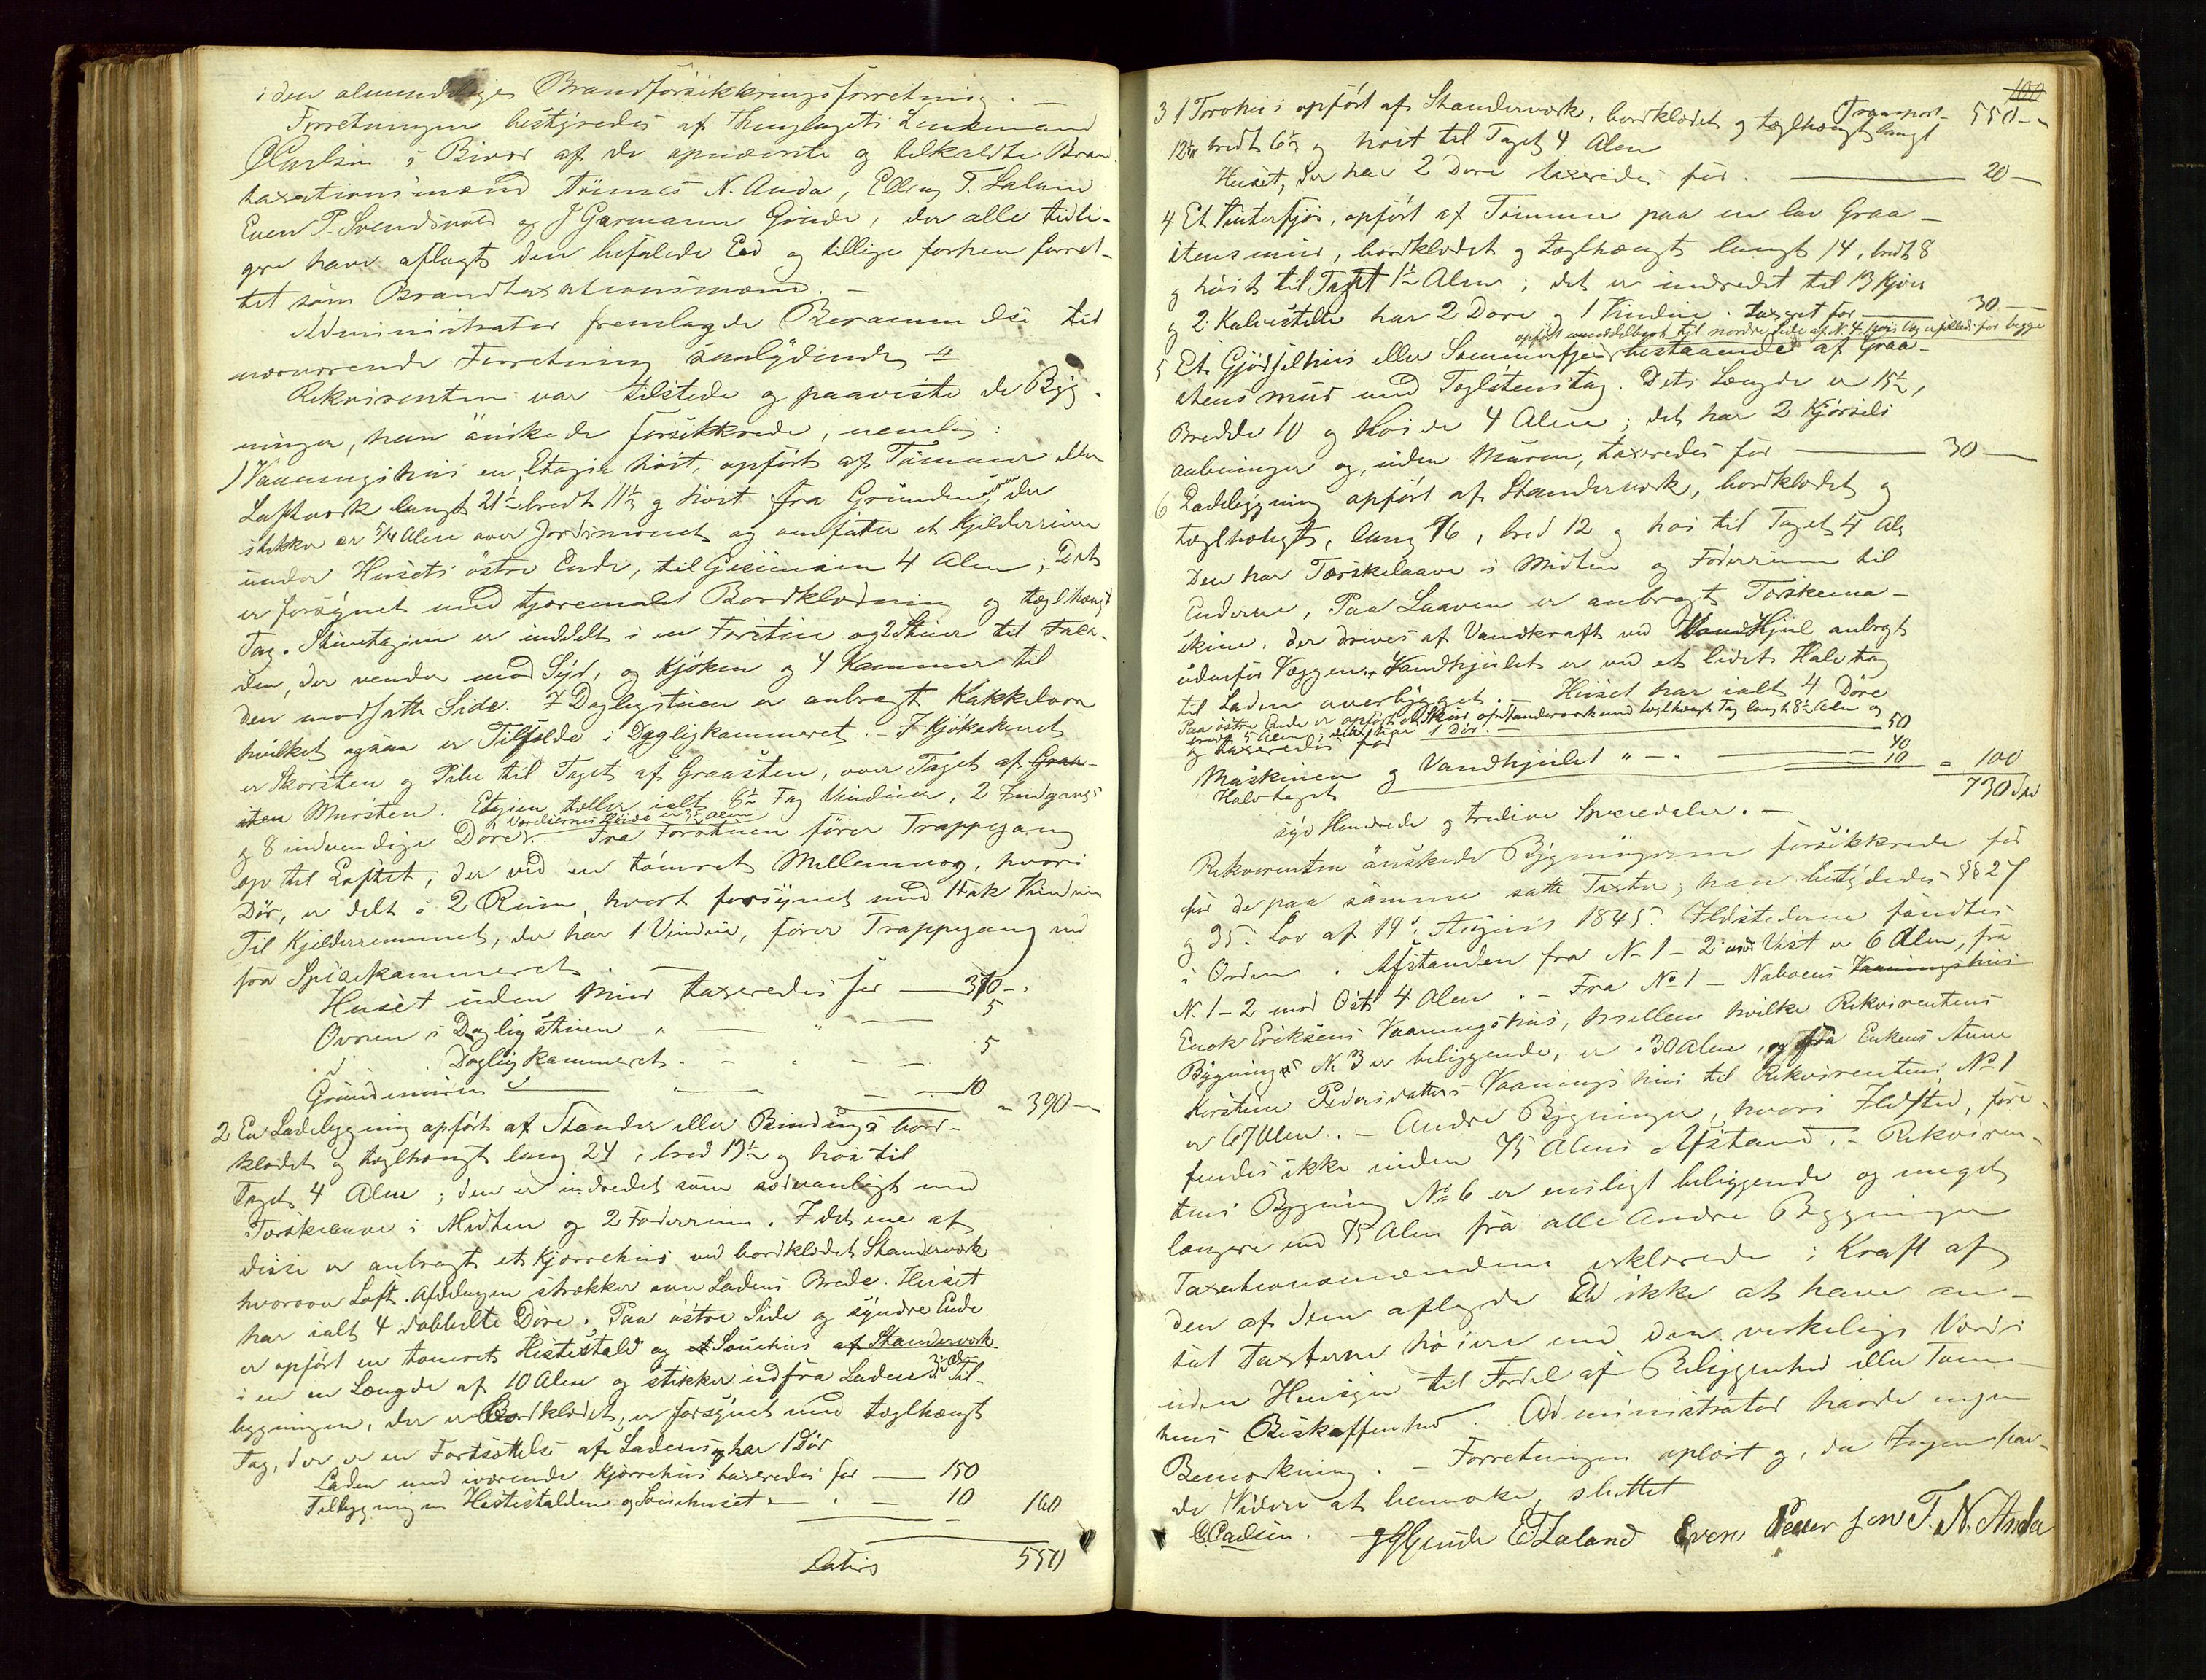 i den almindelige Brandforsikkringsforretning. —
Forretningen bestyredes af Thinglagets Lensmand
C Carlsen i Bivær af de opnævnte og tilkaldte Brand
taxationsmænd Tönnes N. Anda, Elling T. Laland
Even P. Svendsvold og J Garmann Grude, der alle tidli-
gere have aflagt den befalede Eed og tillige forhen forret-
tet som Brandtaxationsmænd. —
Administrator fremlagde Berammelse til
nærværende Forretning saalydende
Rekvirenten var tilstede og paaviste de Byg-
ninger, han önskede forsikkrede, nemlig:
1 Vaaningshus en Etagie höit, opfört af Tömmer eller
Laftværk langt 21½ bredt 11½ og höit fra Grunden, der
stikker er 5/4 Alen over Jordsmonet og omfatter et Kjelderrum
under Husets östre Ende, til Gesimsen 4 Alen; Det
er forsynet med tjæremalet Bordklædning og teglhængt
Tag. Stueetagien er inddelt i en Forstue og 2 Stuer til Faca-
den, der vender mod Syd, og Kjöken og 4 Kammer til
den modsatte Side. I Dagligstuen er anbragt Kakkelovn
hvilket ogsaa er Tilfælde i Dagligkammeret. – I Kjökkenet
er Skorsten og Pibe til Taget af Graasten, over Taget af Graa-
sten Mursten. Etagien tæller ialt 6½ Fag Vinduer, 2 Indgangs
Værelsernes Höide er 3½ Alen
og 8 indvendige Döre. Fra Forstuen förer Trappegang
op til Loftet, der ved en tömret Mellemvæg, hvori
Dör, er delt i 2 Rum, hvert forsynet med 1 Fak Vinduer
Til Kjelderrummet, der har 1 Vindue, förer Trappegang ned
fra Spisekammeret. —
Huset uden Mur taxeredes for — 370 -
Ovnen i Dagligstuen " — " — 5
d Dagligkammeret. - " — 5
Grundmuren — — 10 = 390 —
2 En Ladebygning opfört af Stander eller Bindings bord-
klædet og teglhængt lang 24, bred 13½ og höi til
Taget 4 Alen; den er indredet som sædvanligt med
Tærskelaave i Midten og 2 Foderrum. I det ene af
disse er anbragt et Kjærrehus ved bordklædet Standerværk
hvorover Loft. Afdelingen strækker over Ladens Brede. Huset
har ialt 4 dobbelte Döre. Paa östre Side og syndre Ende
er opfört en tömret Hestestald og et Souehus af Standerværk
i en en Længde af 10 Alen og stikker ud fra Laden 3½ Al. Til-
bygningen, der er Bordklædet, er forsynet med teglhængt
Tag, der er en Fortsættelse af Ladens og har 1 Dör
Laden med iværende Kjærrehus taxeredes for — 150
Tilbygningen Hestestalden og Souehuset " — " — 10 160
Latus 550
100
Transport 550 —
3 1 Torvhus opfört af Standerværk, bordklædet og teglhængt langt
12½ bredt 6½ og höit til Taget 4 Alen
Huset, der har 2 Döre taxeredes for. — 20 —
4 Et Vinterfjös, opfört af Tömmer paa en lav Graa-
stensmur, bordklædet og teglhængt langt 14, bredt 8
og höit til Taget Alen; det er indredet til 13 Kjöer
og 2 Kalvestelle har 2 Döre og 1 Vindue. Taxeret for 30 —
opfört umiddelbart til nordre Side af N. 4, hvis Væg er fælleds for begge
5 Et Gjödselhus eller Sommerfjös bestaaende af Graa-
stensmur med Teglstenstag. Dets Længde er 15½,
Bredde 10 og Höide 4 Alen; det har 2 Kjörsels
aabninger og, uden Muren, taxeredes for — 30 —
6 Ladebygning opfört af Standerværk, bordklædet og
teglhængt, lang 16, bred 12 og höi til Taget 4 Al
Den har Tærskelaave i Midten og Foderrum til
Enderne, Paa Laaven er anbragt Tærskema-
skine, der drives af Vandkraft ved Vandhjul anbragt
udenfor Væggen. Vandhjulet er ved et lidet Halvtag
til Laden overbygget. — Huset har ialt 4 Döre
Paa östre Ende er opfört et Skur af Standerværk med teglhængt Tag langt 8½ Alen og
bredt 5 Alen; det har 1 Dör. —
og taxeredes for — 50
Maskinen og Vandhjulet " — " — 40
Halvtaget — 10 = 100
730 Spd
syv Hundrede og tredive Speciedaler. —
Rekvirenten önskede Bygningerne forsikkrede for
for de paa samme satte Taxter; han betydedes §§ 27
og 35. Lov af 19d August 1845. Ildstederne fandtes
i Orden. Afstanden fra N. 1 – 2 mod Vest er 6 Alen, fra
N. 1 – 2 mod Öst 4 Alen. – Fra No 1 – Naboens Vaaningshus
Enok Eriksens Vaaningshus, mellem hvilke Rekvirentens
Bygning No 3 er beliggende, er 30 Alen, og fra Enkens Anne
Kirstine Pedersdatters Vaaningshus til Rekvirentens No 1
er 67 Alen. – Andre Bygninger, hvori Ildsted, fore-
fandes ikke inden 75 Alens Afstand. – Rekviren-
tens Bygning No 6 er ensligt beliggende og meget
længere end 75 Alen fra alle Andre Bygninger
Taxationsmændene erklærede i Kraft af
den af dem aflagde Ed ikke at have an-
sat Taxterne höiere end den virkelige Værdi
uden Hensyn til Fordel af Beliggenhed eller Tom-
tens Beskaffenhed. Administrator havde ingen
Bemærkning. – Forretningen oplæst og, da Ingen hav-
de Videre at bemærke, sluttet
C. Carlsen. JGGrude E T Laland Even Peder sen T. N. Anda